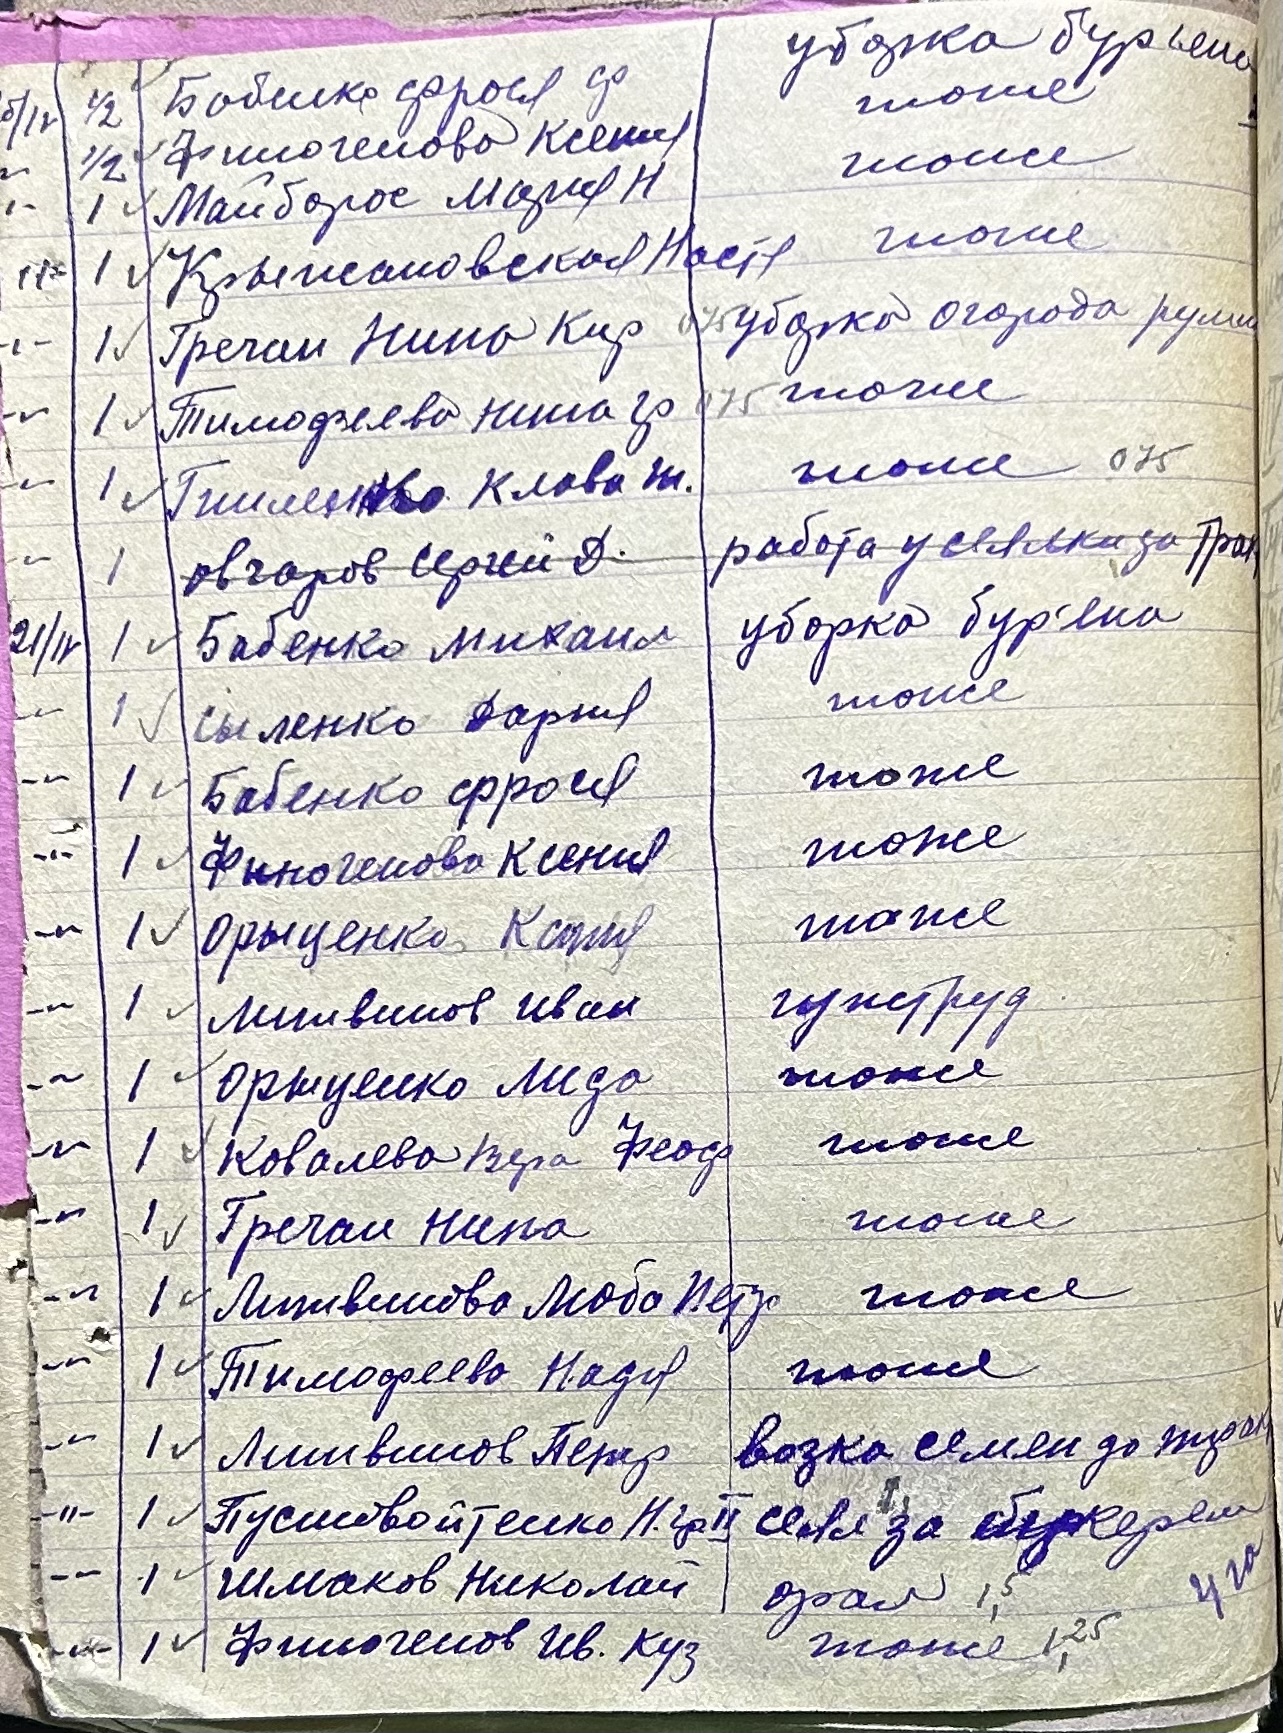 уборка бурьена
1/2 Бабенко Фрося тоже
-"- 1/2 Финогенова Ксения тоже
-"- 1 Майборос Мария Н
-"- 1 Крыжановская Настя тоже
-"- 1 Гречан Нина Кир 075 уборка огорода
-"- 1 Тимофеева Нина Гр 075 тоже
-"- 1 Клава тоже 075
-"- 1 Овчаров Сергей Д. работа у сеялки за Трак
21/IV 1 Бабенко Михаил уборка бур'ена
-"- 1 Сыленко Дарья тоже
-"- 1 Бабенко Фрося тоже
-"- 1 Финогенова Ксения тоже
-"- 1 Орыщенко тоже
-"- 1 Литвинов Иван гужтруд
-"- 1 Орыщенко Лида тоже
-"- 1 Ковалева Вера Феод тоже
-"- 1 Гречан Нина тоже
-"- 1 Литвинова Люба Петр тоже
-"- 1 Тимофеева Надя тоже
-"- 1 Литвинов Петр возка семен до
-"- 1 Пустовойтенко Н. Гр II сеял за букерем
-"- 1 Шмаков Николай орал 1,5 4 га
-"- 1 Финогенов Ив. Куз тоже 1,25